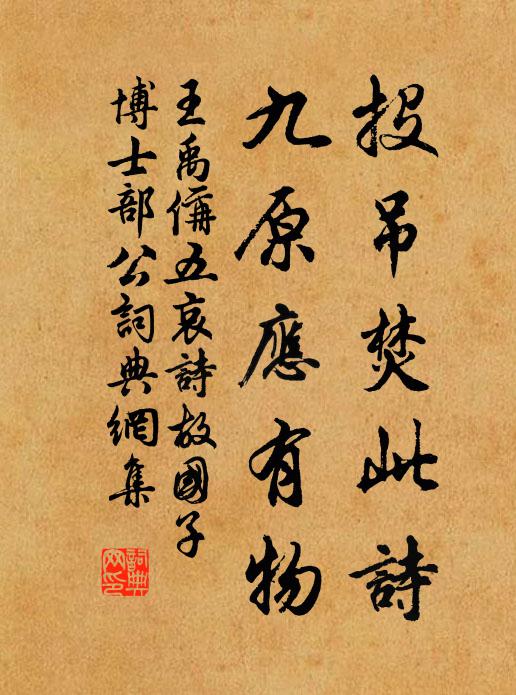 投吊焚此詩
九原應有物
王禹偁五哀詩故國子
博士部公詞典網集
詞典網印